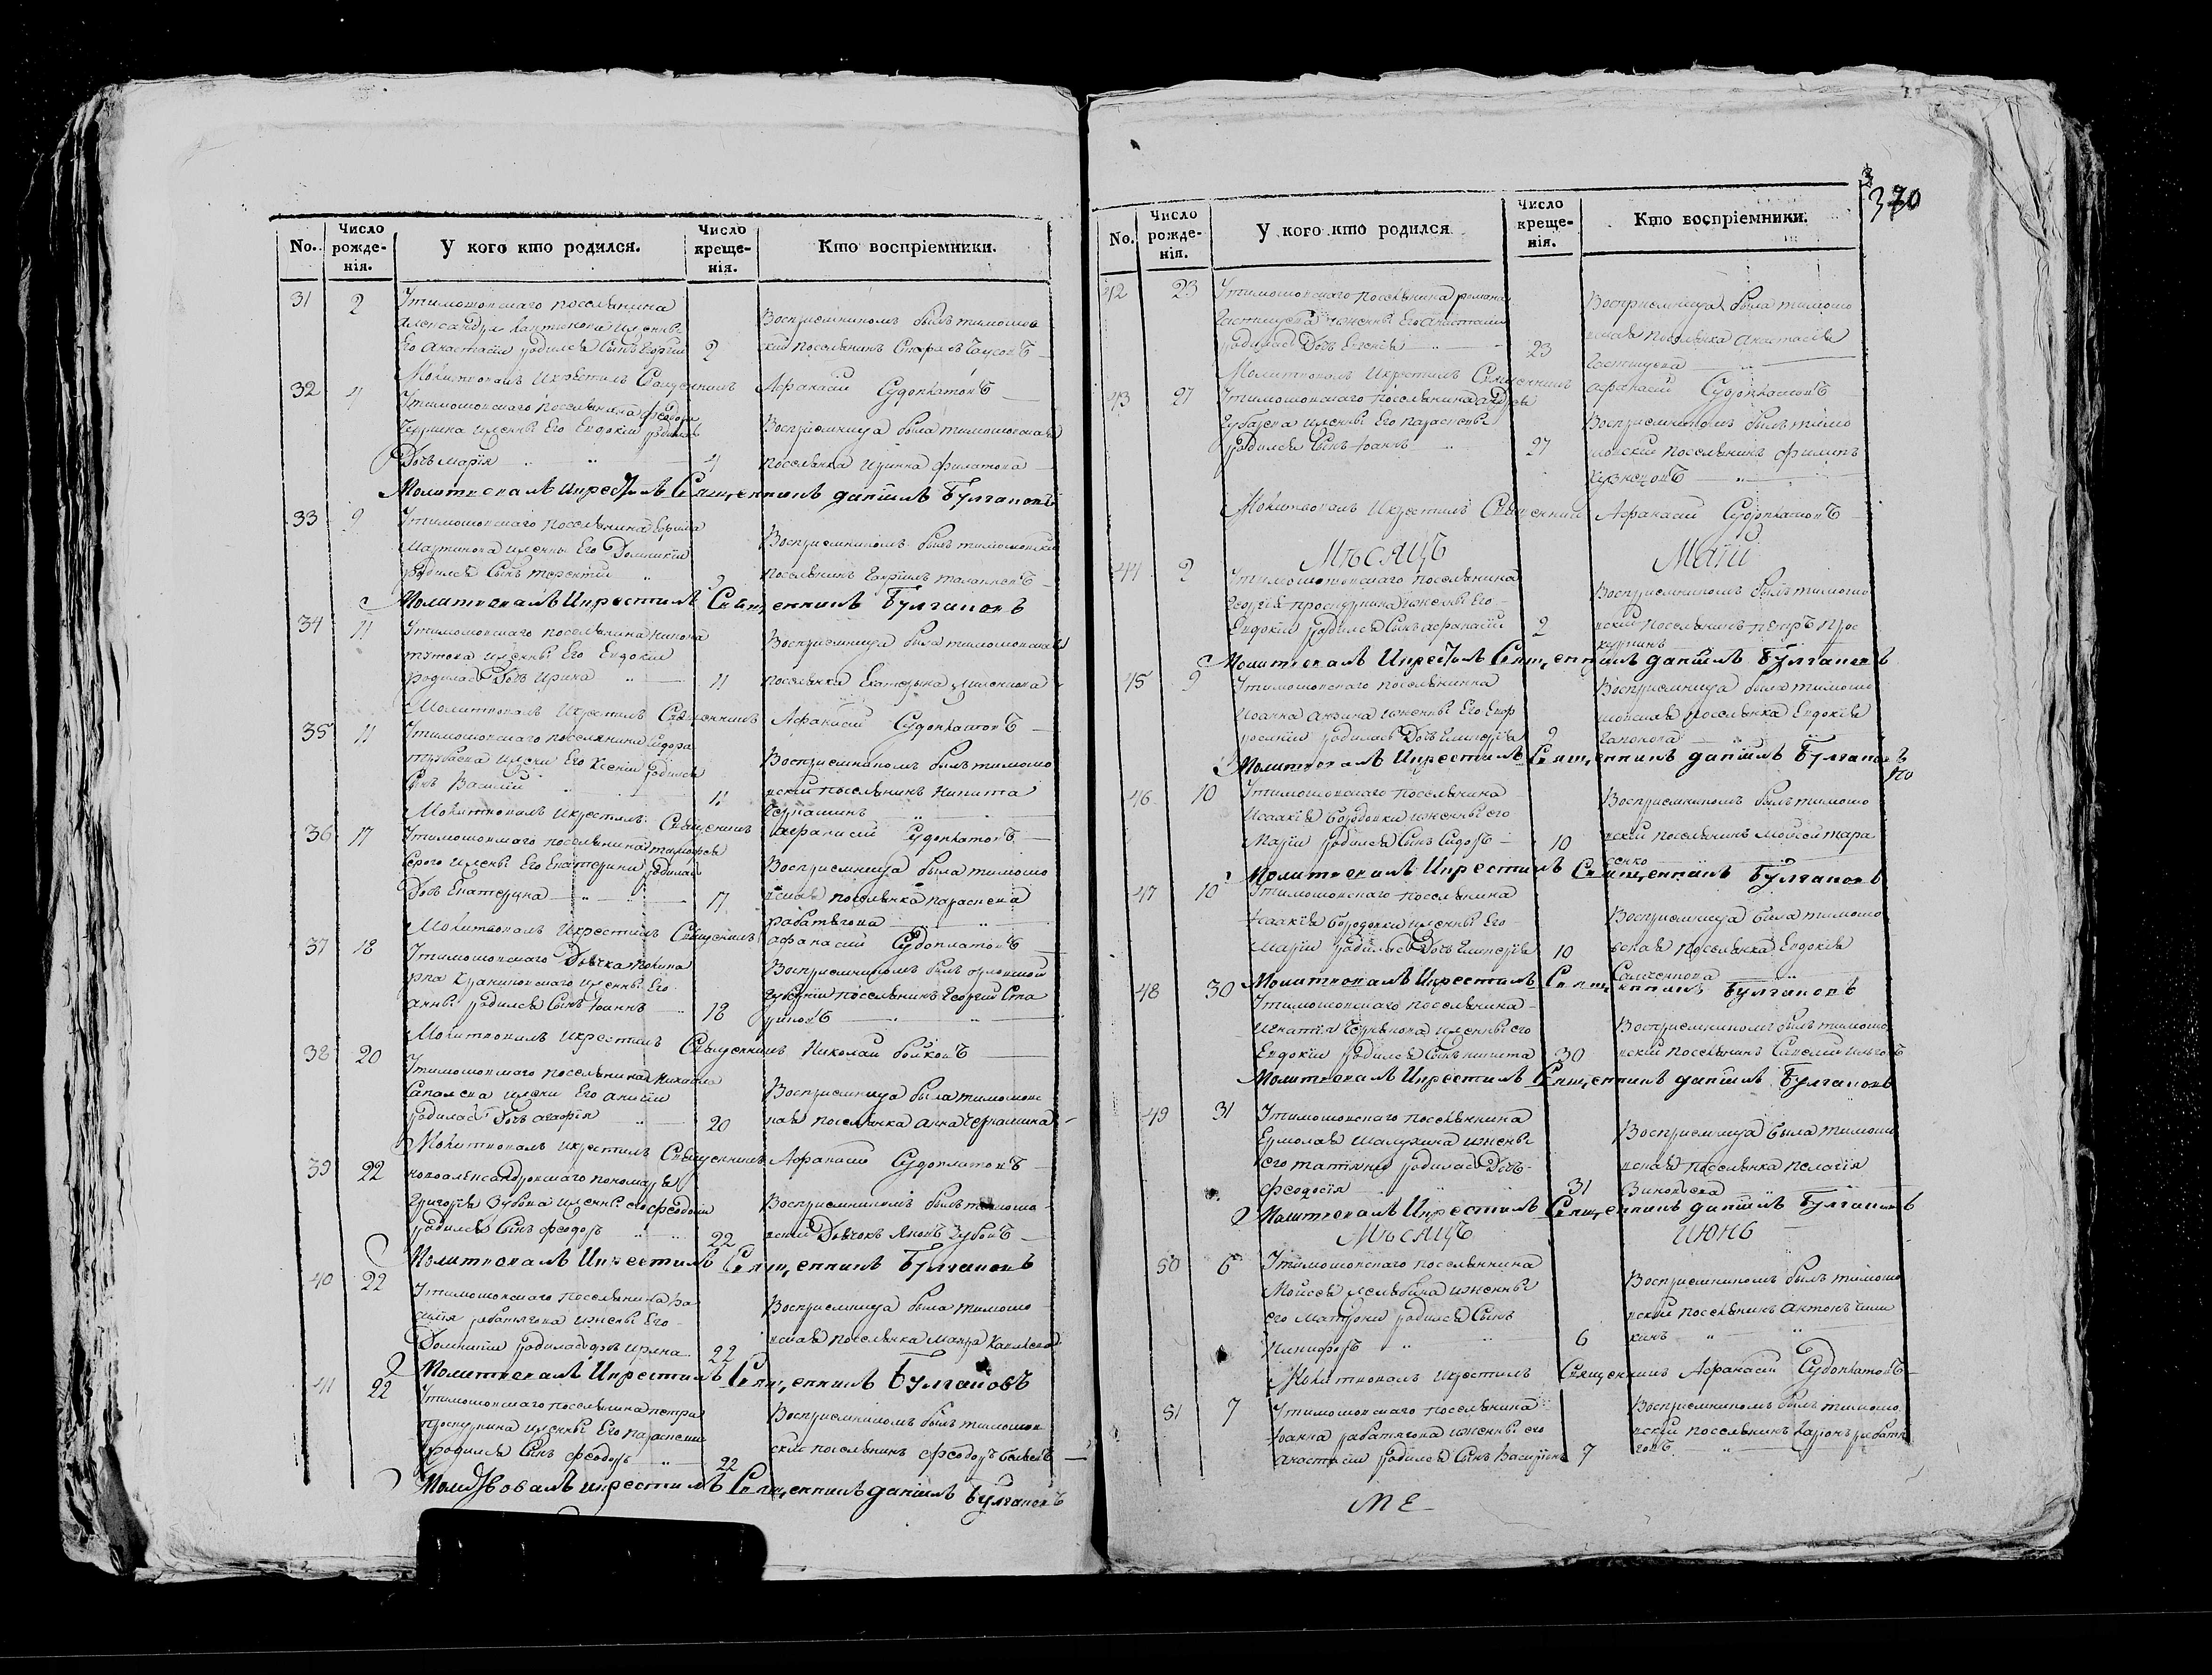 No.
Число рожде-нія.
У кого кто родился.
Число креще-нія.
Кто воспріемники.
31 2
Утимошовскаго поселянина
Александра ижены
Его Анастасіи родился Сынъ Георгій 2
Воспріемникомъ былъ тимошов
скій поселянинъ
Молитвовалъ Икрестилъ Священникъ Афанасій Судоплатовъ
32 4
Утимошовскаго поселянина феодора
ижены Его Евдокіи родилась
Дочь марія 4
Воспріемница была тимошовская
поселянка Ирина филатова
Молитвовалъ Икрестилъ Священникъ даніилъ Булгаковъ
33 9
Утимошовскаго поселянина Ефима
Мартинова ижены Его Домникіи
родился Сынъ терентій 9
Воспріемникомъ былъ тимошовскій
поселянинъ Гавріилъ
Молитвовалъ Икрестилъ Священникъ Булгаковъ
34 11
Утимошовскаго поселянина
титова ижены Его Евдокіи
родилась Дочь Ирина 11
Воспріемница была тимошовская
поселянка Екатерина
Молитвовалъ Икрестилъ Священникъ Афанасій Судоплатовъ
35 11
Утимошовскаго поселянина Сидора
ижени Его Ксеніи родился
Сынъ Василій 11
Воспріемникомъ былъ тимошо
вскій поселянинъ Никита
Молитвовалъ Икрестилъ Священникъ афанасій Судоплатовъ
36 17
Утимошовскаго поселянина тимофея
Сѣрого ижены Его Екатерини родилась
Дочь Екатерина 17
Воспріемница была тимошо
вская поселянка параскева
рабатягова
Молитвовалъ Икрестилъ Священникъ афанасій Судоплатовъ
37 18
Утимошовскаго Дьячка
ижены Его
анны родился Сынъ Іоаннъ 18
Воспріемникомъ былъ орловской
губерніи поселянинъ Георгій
Молитвовалъ Икрестилъ Священникъ Николай бойковъ
38 20
Утимошовскаго поселянина Михайла
ижени Его
родилась Дочь агафія 20
Воспріемница была тимошовс
кая поселянка анна Чернышина
Молитвовалъ Икрестилъ Священникъ Афанасій Судоплатовъ
39 22
новоалександровскаго пономаря
Григорія Зубова ижены его феодосіи
родился Сынъ феодоръ 22
Воспріемникомъ былъ тимошо
вскій Дьячокъ Яковъ Зубовъ
Молитвовалъ Икрестилъ Священникъ Булгаковъ
40 22
Утимошовскаго поселянина Ва
силія рабатягова ижены Его
Домникіи родилась дочь ирина 22
Воспріемница была тимошо
вская поселянка
Молитвовалъ Икрестилъ Священникъ Булгаковъ
41 22
Утимошовскаго поселянина петра
проскурина ижены Его параскевіи
родился Сынъ феодоръ 22
Воспріемникомъ былъ тимошов
скій поселянинъ феодоръ
Молитвовалъ икрестилъ Священникъ даніилъ Булгаковъ
370
No.
Число рожде-нія.
У кого кто родился
Число креще-нія.
Кто воспріемники.
42 23
Утимошовскаго поселянина романа
ижены Его Анастасіи
родилась Дочь Евгенія 23
Воспріемница была тимошо
вская поселянка анастасія
Молитвовалъ Икрестилъ Священникъ афанасій Судоплатовъ
43 27
Утимошовскаго поселянина андрея
Губарева ижены Его параскевы
родился Сынъ Іоаннъ 27
Воспріемникомъ былъ тимо
шовскій поселянинъ филипъ
Кузнецовъ
Молитвовалъ Икрестилъ Священникъ Афанасій Судоплатовъ
Мѣсяцъ Маій
44 2
Утимошовскаго поселянина
Георгія проскурина ижены Его
Евдокіи родился Сынъ афанасій 2
Воспріемникомъ былъ тимошо
вскій поселянинъ петръ прос
куринъ
Молитвовалъ Икрестилъ Священникъ даніилъ Булгаковъ
45 9
Утимошовскаго поселянина
Иоанна ижены Его Евф
росиніи родилась Дочь Гликерія 9
Воспріемница была тимошо
поселянка Евдокія
Молитвовалъ Икрестилъ Священникъ даніилъ Булгаковъ
46 10
Утимошовскаго поселянина
Исаакія бородовки ижены его
Маріи родился Сынъ Сидоръ 10
Воспріемникомъ былъ тимошо
вскій поселянинъ Мойсей тара
сенко
Молитвовалъ Икрестилъ Священникъ Булгаковъ
47 10
Утимошовскаго поселянина
Исаакія бородовки ижены Его
Маріи родилась Дочь Гликерія 10
Воспріемница была тимошо
вская поселянка Евдокія
Молитвовалъ Икрестилъ Священникъ Булгаковъ
48 30
Утимошовскаго поселянина
Игнатія ижены его
Евдокіи родился Сынъ никита 30
Воспріемникомъ былъ тимошо
вскій поселянинъ Савелій
Молитвовалъ Икрестилъ Священникъ даніилъ Булгаковъ
49 31
Утимошовскаго поселянина
Ермолая Шалухина ижены
его татіяны родилась Дочь
феодосія 31
Воспріемница была тимошо
вская поселянка пелагія
Молитвовалъ Икрестилъ Священникъ даніилъ Булгаковъ
Мѣсяцъ Июнь
50 6
Утимошовскаго поселянина
Мойсея ижены
его Матроны родился Сынъ
Никифоръ 6
Воспріемникомъ былъ тимошо
вскій поселянинъ антонъ
Молитвовалъ Икрестилъ Священникъ Афанасій Судоплатовъ
51 7
Утимошовскаго поселянина
Іоанна рабатягова ижены его
анастасіи родился Сынъ 7
Воспріемникомъ былъ тимошо
вскій поселянинъ Ларіонъ рабатя
говъ